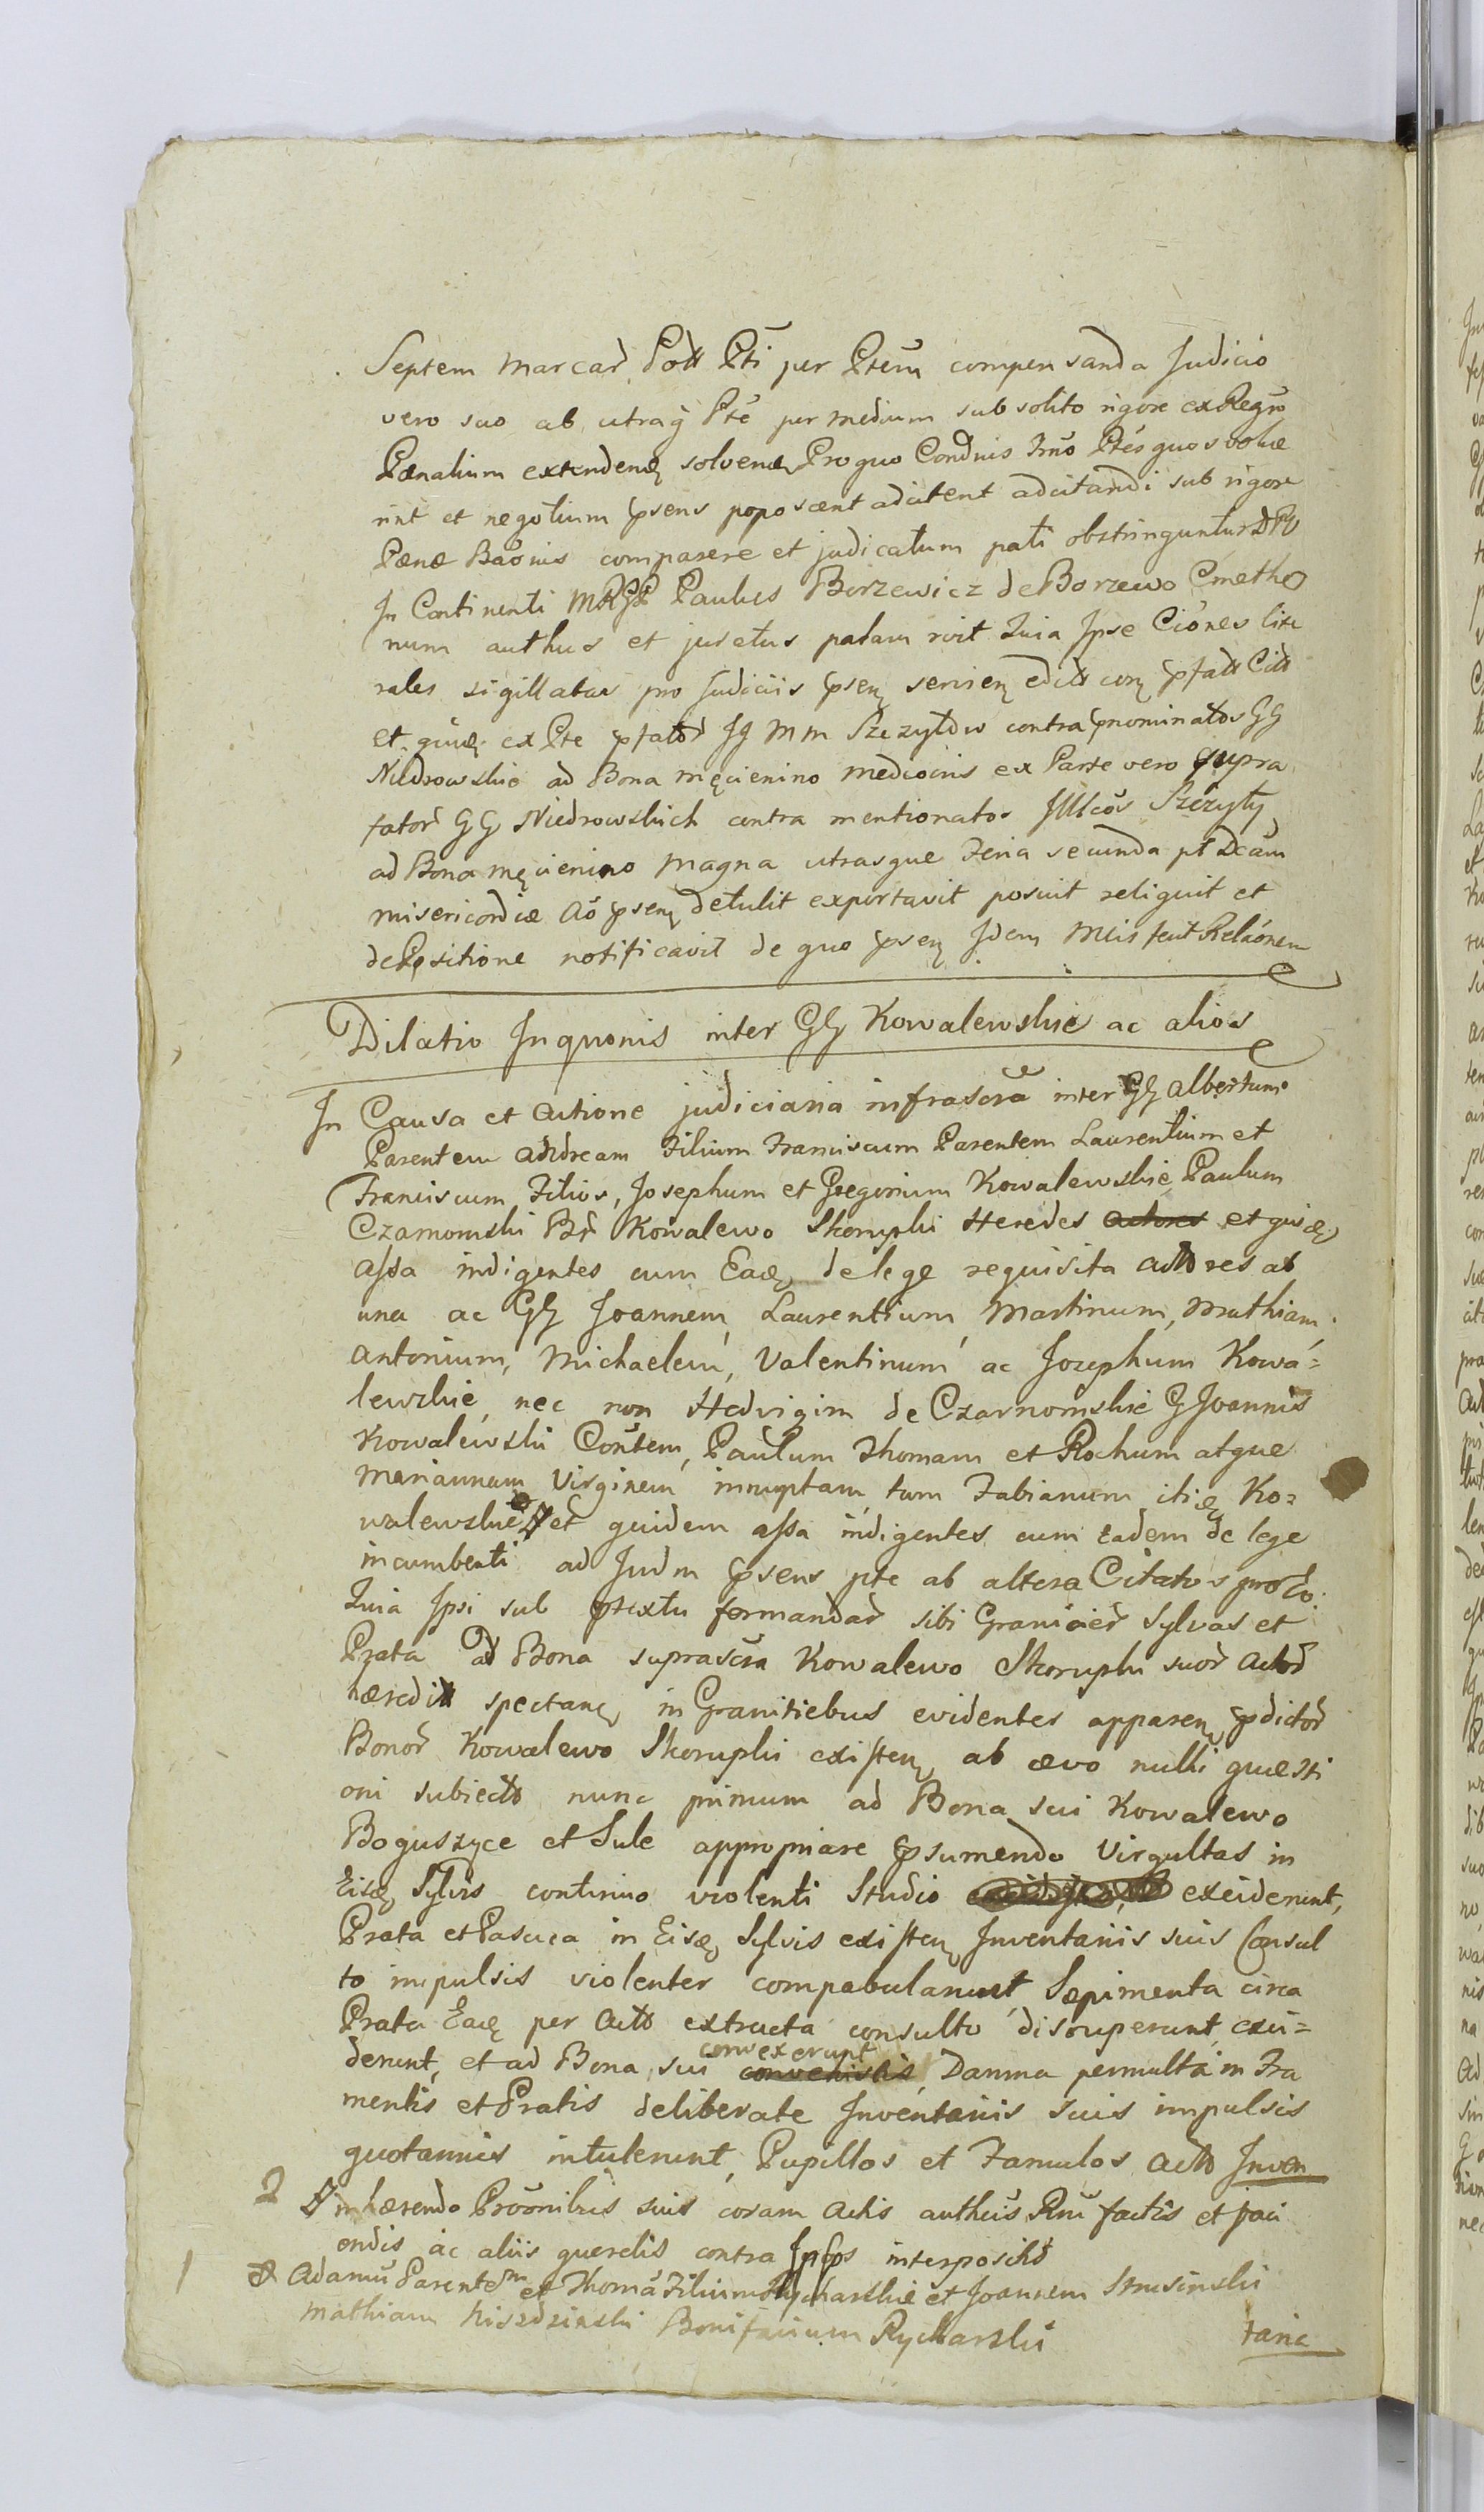 Septem marcar Poll Pti per Ptem compensanda Judicio
vero suo ab utraq Pte per medium sub solito rigore ex Regro
Pænalium extendenę solvenę Pro quo Condnis Imo Ptes quos volue
rint et negotium psens poposcent adcitent adcitandi sub rigore
Pænæ Baonis comparere et judicatum pati obstringuntur
In Continenti MRGP Paulus Borzewicz de Borzewo Cmetho
num authus et juratus palam rvit Quia Ipse Ciones lite
rales sigillatas pro Judiciis psenę servienę
et quię ex Pte pfator JJ Mm Szczytow contra pnominatos GG
Niedrowskie ad Bona Męcienino mediocris ex Parte vero supra
fator GG Niedrowskich contra mentionatos Szczyty
ad Bona Męcienino Magna utrasque Feria secunda pt Dcam
misericordiæ Ao psenę detulit exportavit posuit reliquit et
de Positione notificavit de quo psenę Idem Mlis fecit Relaonem
Dilatio Inquonis inter GG Kowalewskie ac alios
In Causa et Actione judiciaria infrascra inter GG Albertum
Parentem Andream Filium Franciscum Parentem Laurentium et
Franciscum Filios, Josephum et Gregorium Kowalewskie Paulum
Czarnomski Br Kowalewo Skorupki Heredes actores et quiæ
assa indigentes cum Eaę de lege requisita Actores ab
una ac GG Joannem, Laurentium, Martinum, Mathiam
Antonium, Michaelem, Valentinum ac Josephum Kowa=
lewskie, nec non Hedvigim de Czarnomskie G Joannis
Kowalewski Contem, Paulum Thomam et Rochum atque
Mariannam Virginem innuptam tum Fabianum itię Ko=
walewskie et quidem assa indigentes cum eadem de lege
incumbenti ad Judm psens pte ab altera Citatos pro eo.
Quia Ipsi sub ptextu formandar sibi Granicier Sylvas et
Prata ad Bona suprascra Kowalewo Skorupki suor Actor
hæredit spectanę in Granitiebus evidenter apparenę pdictor
Bonor Kowalewo Skorupki existenę ab ævo nulli quæsti
oni subiecto nunc primum ad Bona sui Kowalewo
Boguszyce et Sule appropriare psumendo Virgultas in
Eisę Sylvis continuo violenti Studio exciderunt,
Prata et Pascua in Eisę Sylvis existenę Inventariis suis Consul
to impulsis violenter compabularunt Sæpimenta circa
Prata Eaę per Acto extructa consulto disruperunt exci=
derunt, et ad Bona sui convexerunt, Damna permulta in Fra
mentis et Pratis deliberate Inventariis suis impulsis
quotannis intulerunt, Pupillos et Famulos Acto Inven
2 inhærendo Proonibus suis coram Actis authcis Rni factis et faci
endis ac aliis querelis contra Ipsos interpositis
1 Adamu Parentem et Thoma Filium Rycharskie et Joannem Strusinski
Mathiam Bonifacium Rycharski
tarie